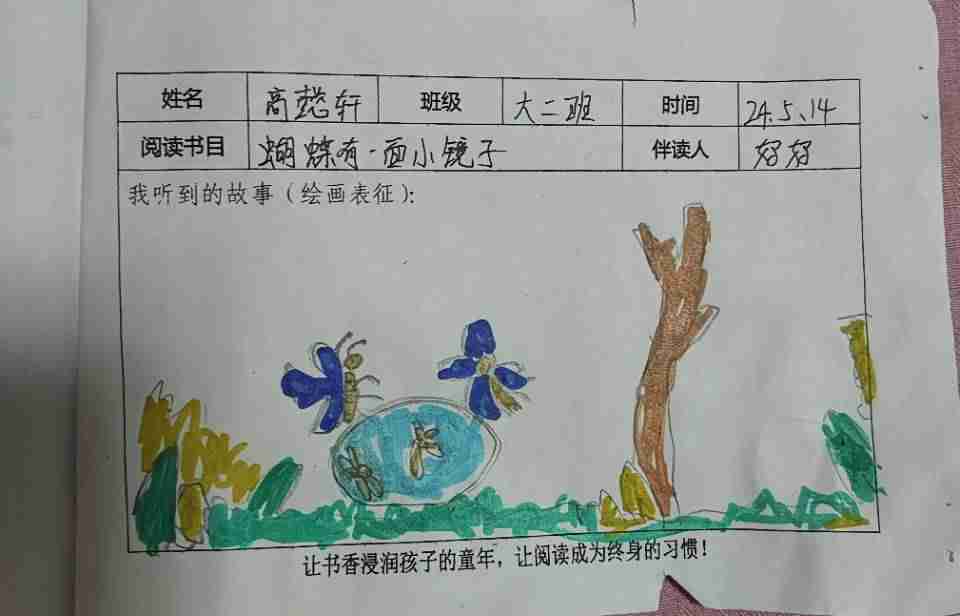 姓名 高懿轩 班级 大二班 时间 24.5.14
阅读书目 蝴蝶有一面小镜子 伴读人 好好
我听到的故事（绘画表征）：
让书香浸润孩子的童年，让阅读成为终身的习惯！